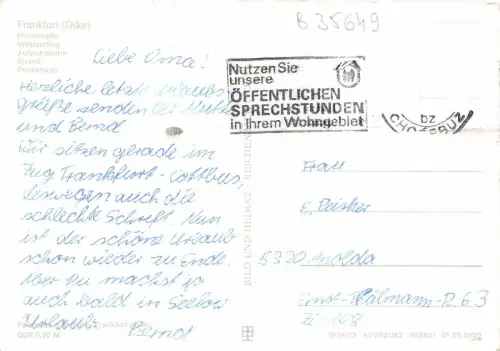 B 35649
Frankfurt (Oder)
Promenade
Strand
Promenade
Nutzen Sie
unsere
ÖFFENTLICHEN
SPRECHSTUNDEN
in Ihrem Wohngebiet
bz
CHOŚEBUZ
Liebe Oma!
Herzliche letzte Urlaubs-
grüße senden Dir
und Bernd
Wir sitzen gerade im
Zug Frankfurt-Cottbus,
deswegen auch die
schlechte Schrift. Nun
ist der schöne Urlaub
schon wieder zu Ende.
Aber Du machst ja
auch bald in Seelow
Urlaub. Bernd
BILD UND HEIMAT REICHENBACH
Frau
E. Peisker
5320 Apolda
Ernst-Thälmann-R. 63
Zi 108
DDR 0,20 M